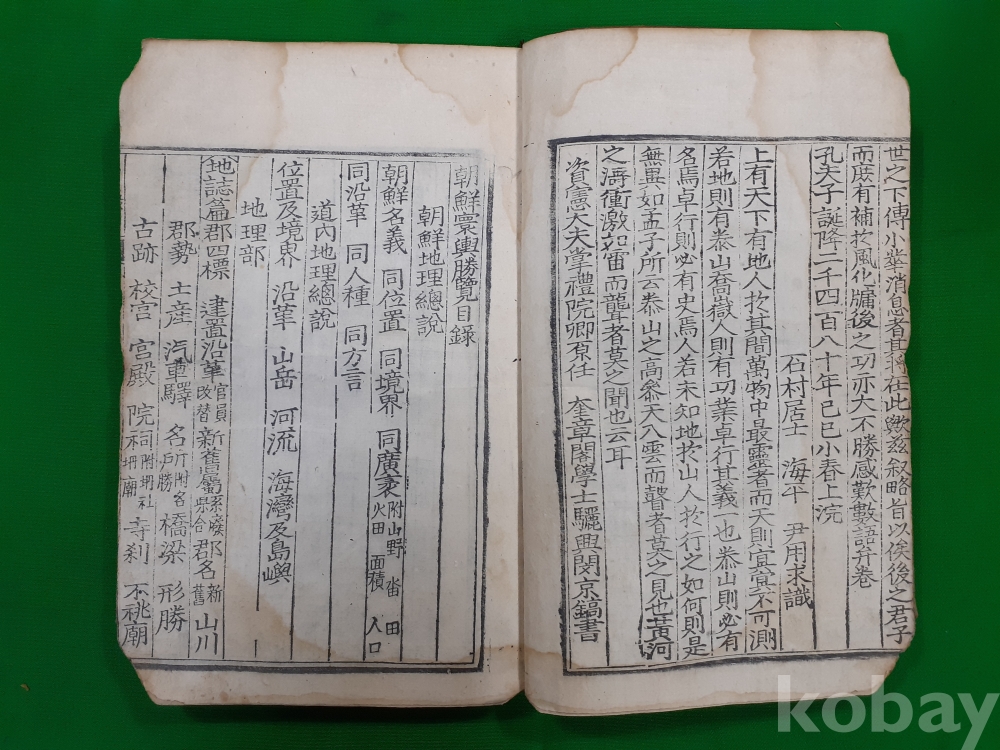 世之下傳小數消息者其將在此歟玆叙略旨以俟後之君子
而庶有補於風化牖後之功亦大不勝感歎數語弁卷
孔夫子誕降二千四百八十年己巳小春上浣
石村居士 海平 尹用求識
上有天下有地人於其間萬物中最靈者而天則寘寞不可測
若地則有泰山喬嶽人則有功業卓行其義一也泰山則必有
名焉卓行則必有史焉人若未知地於山人於行之如何則是
無異如孟子所云泰山之高參天入雲而瞽者莫之見也黃河
之濤衝激如雷而聾者莫之聞也云耳
資憲大夫掌禮院卿原任 奎章閣學士驪興閔京鎬書
朝鮮寰輿勝覽目錄
朝鮮地理總說
朝鮮名義 同位置 同境界 同廣袤 附山野 沓 田 火田 面積 人口
同沿革 同人種 同方言
道內地理總說
位置及境界 沿革 山岳 河流 海灣及島嶼
地理部
地誌篇郡四標 建置沿革 官員改替 新舊屬縣廢合 郡名 新舊 山川
郡勢 土産 汽車驛 名所附名勝 橋梁 形勝
古跡 校宮 宮殿 院祠附壇社 寺刹 不祧廟
kobay